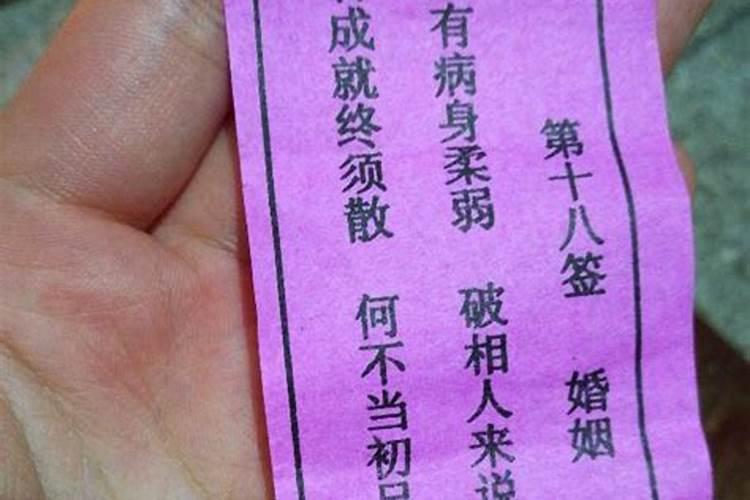 第十八签 婚姻
有病身柔弱 破相人来说
成就终须散 何不当初